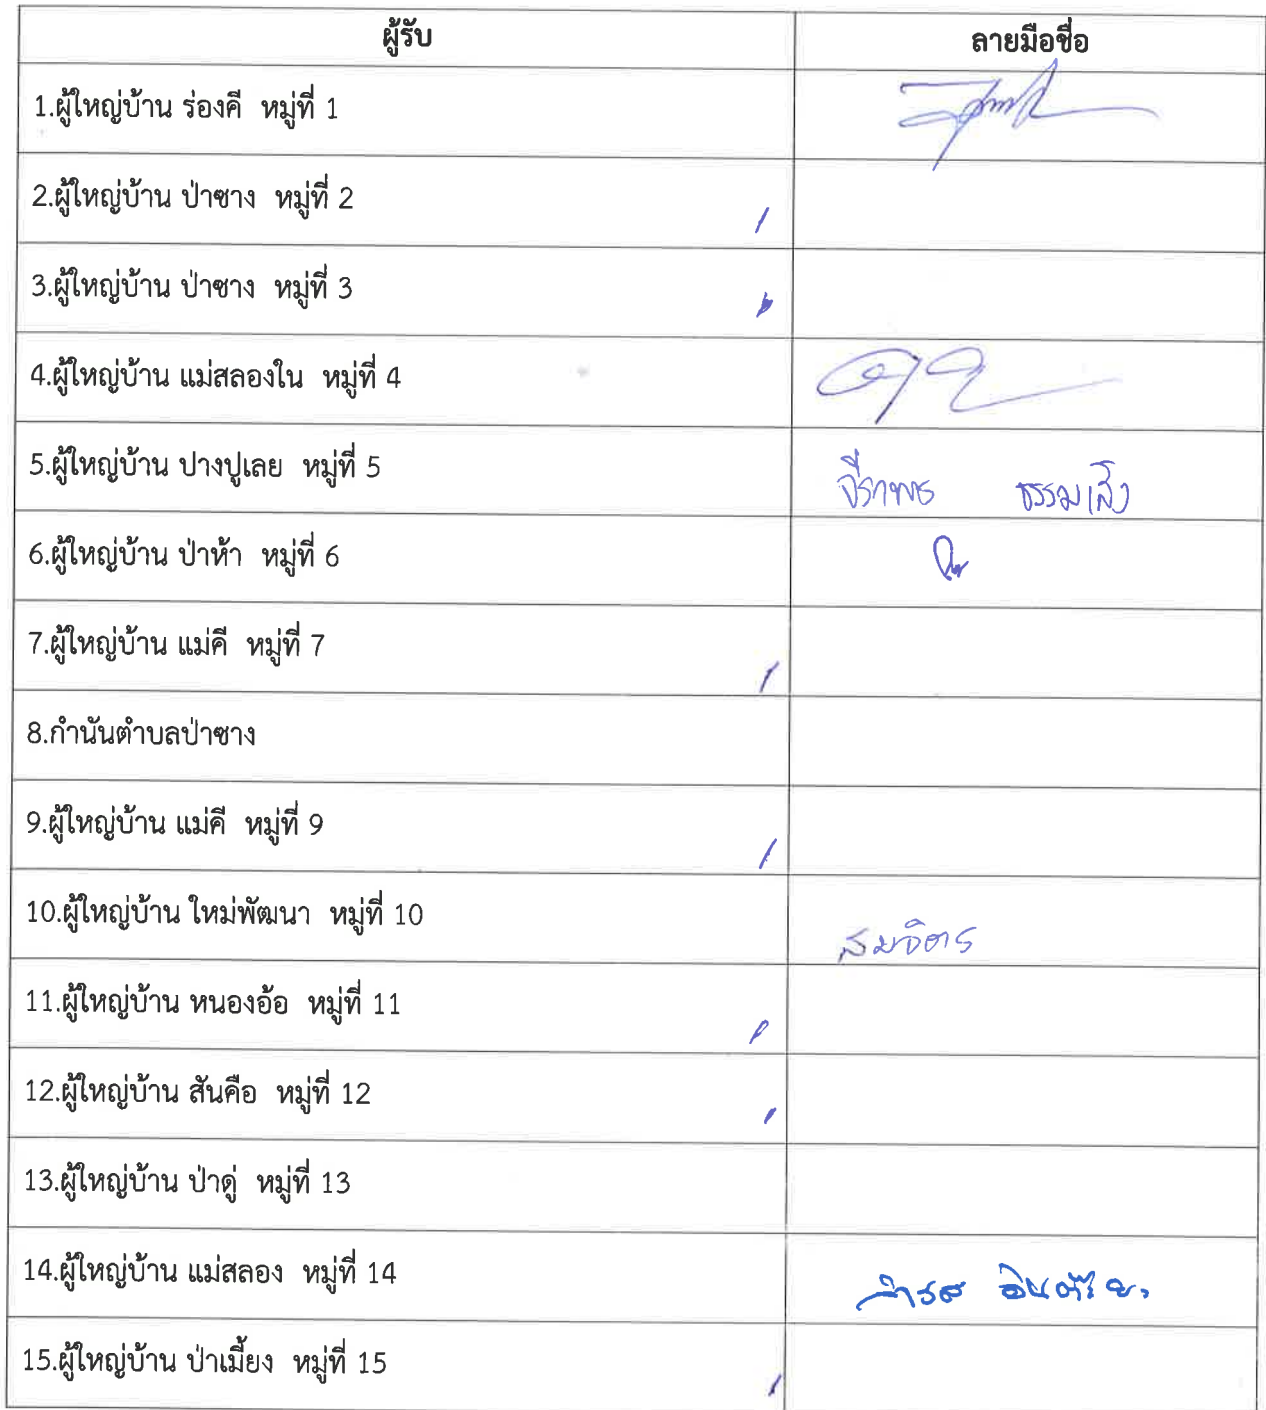 ผู้รับ ลายมือชื่อ
1.ผู้ใหญ่บ้าน ร่องคี หมู่ที่ 1
2.ผู้ใหญ่บ้าน ป่าซาง หมู่ที่ 2
3.ผู้ใหญ่บ้าน ป่าซาง หมู่ที่ 3
4.ผู้ใหญ่บ้าน แม่สลองใน หมู่ที่ 4
5.ผู้ใหญ่บ้าน ปางปูเลย หมู่ที่ 5
6.ผู้ใหญ่บ้าน ป่าห้า หมู่ที่ 6
7.ผู้ใหญ่บ้าน แม่คี หมู่ที่ 7
8.กำนันตำบลป่าซาง
9.ผู้ใหญ่บ้าน แม่คี หมู่ที่ 9
10.ผู้ใหญ่บ้าน ใหม่พัฒนา หมู่ที่ 10 สมจิตร
11.ผู้ใหญ่บ้าน หนองอ้อ หมู่ที่ 11
12.ผู้ใหญ่บ้าน สันคือ หมู่ที่ 12
13.ผู้ใหญ่บ้าน ป่าดู่ หมู่ที่ 13
14.ผู้ใหญ่บ้าน แม่สลอง หมู่ที่ 14
15.ผู้ใหญ่บ้าน ป่าเมี้ยง หมู่ที่ 15